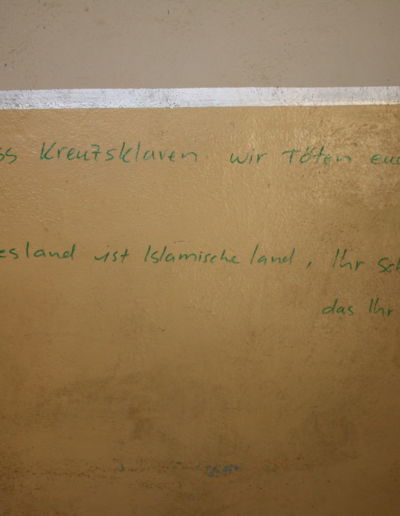 ss Kreuzsklaven wir Töten euc
esland ist Islamische land, Ihr Sch
das Ihr